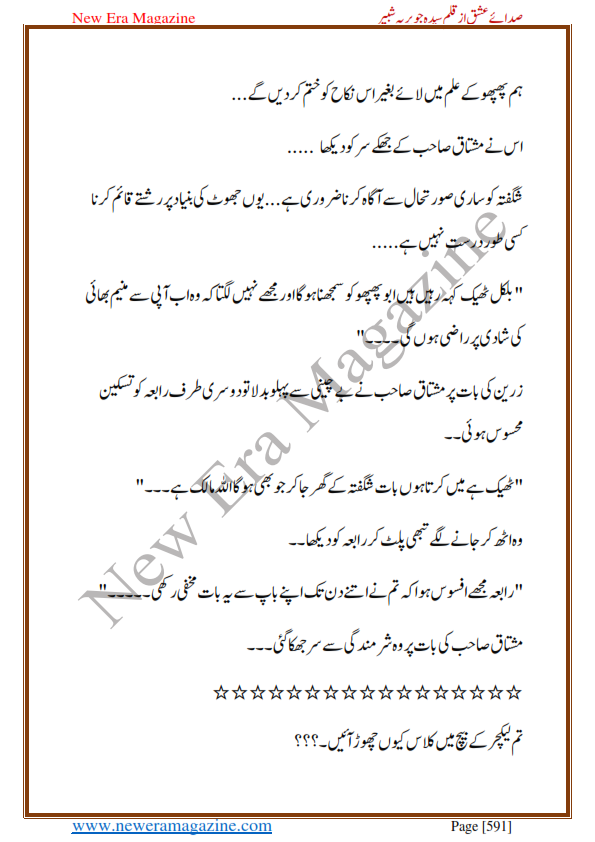 New Era Magazine صدائے عشق از قلم سیدہ جویریہ شبیر
ہم پھپھو کے علم میں لائے بغیر اس نکاح کو ختم کر دیں گے...
اس نے مشتاق صاحب کے جھکے سر کو دیکھا .....
شگفتہ کو ساری صورتحال سے آگاہ کرنا ضروری ہے...یوں جھوٹ کی بنیاد پر رشتے قائم کرنا
کسی طور درست نہیں ہے.....
"بلکل ٹھیک کہہ رہیں ہیں ابو پھپھو کو سمجھنا ہوگا اور مجھے نہیں لگتا کہ وہ اب آپی سے منیم بھائی
کی شادی پر راضی ہوں گی۔۔۔۔"
زرین کی بات پر مشتاق صاحب نے بے چینی سے پہلو بدلا تو دوسری طرف رابعہ کو تسکین
محسوس ہوئی۔۔
"ٹھیک ہے میں کرتا ہوں بات شگفتہ کے گھر جا کر جو بھی ہوگا اللہ مالک ہے۔۔۔"
وہ اٹھ کر جانے لگے تبھی پلٹ کر رابعہ کو دیکھا۔۔
"رابعہ مجھے افسوس ہوا کہ تم نے اتنے دن تک اپنے باپ سے یہ بات مخفی رکھی۔۔۔۔۔"
مشتاق صاحب کی بات پر وہ شرمندگی سے سر جھکا گئی۔۔۔
☆☆☆☆☆☆☆☆☆☆☆☆☆☆☆☆☆
تم لیکچر کے بیچ میں کلاس کیوں چھوڑ آئیں۔؟؟؟
New Era Magazine
www.neweramagazine.com Page [591]